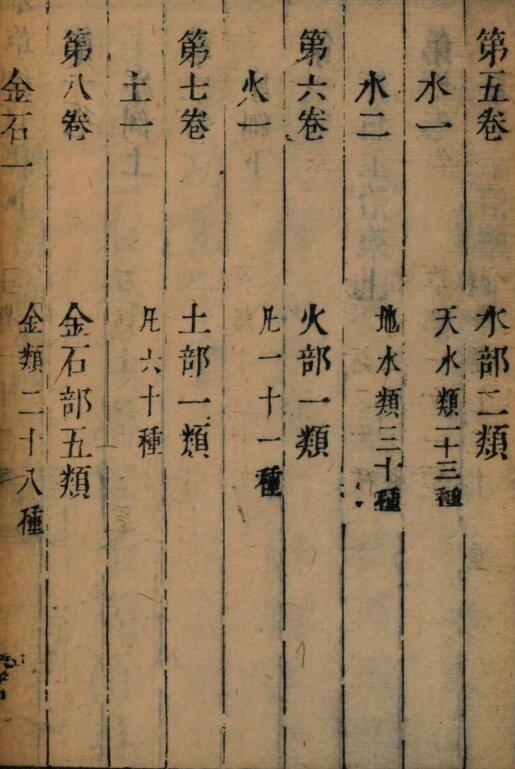 第五卷 水部二類
水一 天水類一十三種
水二 地水類三十種
第六卷 火部一類
火一 凡一十一種
第七卷 土部一類
土 凡六十種
第八卷 金石部五類
金石一 金類二十八種